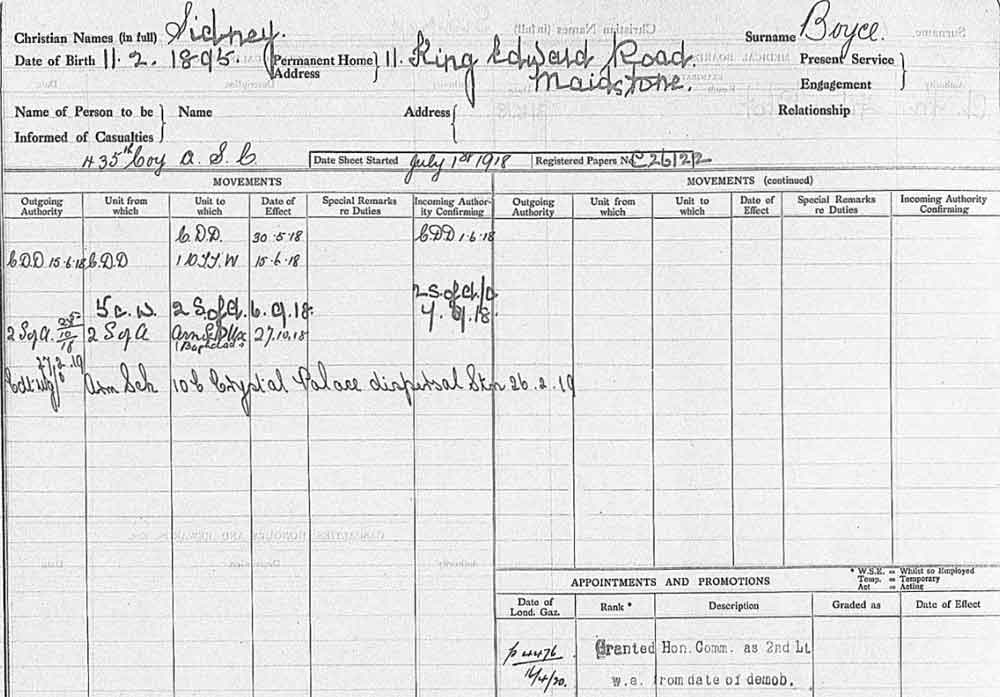 Christian Names (in full) Sidney. Surname Boyce.
Date of Birth 11. 2. 1895. Permanent Home Address 11. King Edward Road. Maidstone. Present Service
Engagement
Name of Person to be Informed of Casualties Name Address Relationship
435th Coy A. S. C Date Sheet Started July 1st 1918 Registered Papers No C26122
MOVEMENTS
Outgoing Authority Unit from which Unit to which Date of Effect Special Remarks re Duties Incoming Authority Confirming
C.D.D. 30.5.18 C.D.D 1.6.18
C.D.D 15.6.18 C.D.D 15.6.18
2 S. of A. 6. 9. 18. 2 S. of A/c 4. 9. 18.
2 S of A. 28/10/18 2 S of A 27.10.18
27/2.19
Arm Sch 10 C Crystal Palace dispersal Stn 26.2.19
MOVEMENTS (continued)
Outgoing Authority Unit from which Unit to which Date of Effect Special Remarks re Duties Incoming Authority Confirming
* W.S.E. = Whilst so Employed
Temp. = Temporary
Act = Acting
APPOINTMENTS AND PROMOTIONS
Date of Lond. Gaz. Rank * Description Graded as Date of Effect
p 4476 Granted Hon. Comm. as 2nd Lt
16/4/20. w.e. from date of demob.